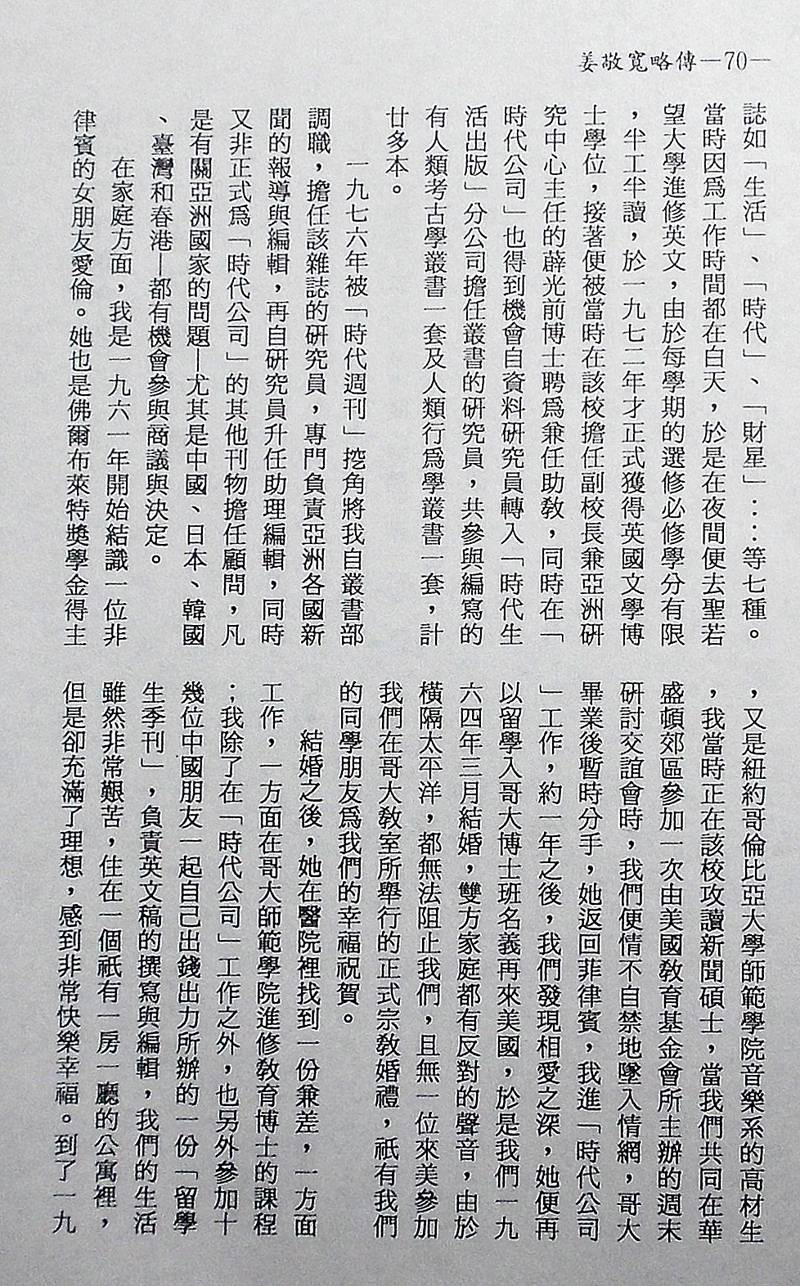 姜敬寬略傳—70—
誌如「生活」、「時代」、「財星」……等七種。
當時因爲工作時間都在白天，於是在夜間便去聖若
望大學進修英文，由於每學期的選修必修學分有限
，半工半讀，於一九七二年才正式獲得英國文學博
士學位，接著便被當時在該校擔任副校長兼亞洲研
究中心主任的薛光前博士聘爲兼任助教，同時在「
時代公司」也得到機會自資料研究員轉入「時代生
活出版」分公司擔任叢書的研究員，共參與編寫的
有人類考古學叢書一套及人類行爲學叢書一套，計
廿多本。
一九七六年被「時代週刊」挖角將我自叢書部
調職，擔任該雜誌的研究員，專門負責亞洲各國新
聞的報導與編輯，再自研究員升任助理編輯，同時
又非正式爲「時代公司」的其他刊物擔任顧問，凡
是有關亞洲國家的問題—尤其是中國、日本、韓國
、臺灣和香港—都有機會參與商議與決定。
在家庭方面，我是一九六一年開始結識一位非
律賓的女朋友愛倫。她也是佛爾布萊特獎學金得主
，又是紐約哥倫比亞大學師範學院音樂系的高材生
，我當時正在該校攻讀新聞碩士，當我們共同在華
盛頓郊區參加一次由美國教育基金會所主辦的週末
研討交誼會時，我們便情不自禁地墜入情網，哥大
畢業後暫時分手，她返回菲律賓，我進「時代公司
」工作，約一年之後，我們發現相愛之深，她便再
以留學入哥大博士班名義再來美國，於是我們一九
六四年三月結婚，雙方家庭都有反對的聲音，由於
橫隔太平洋，都無法阻止我們，且無一位來美參加
我們在哥大教室所舉行的正式宗教婚禮，祇有我們
的同學朋友爲我們的幸福祝賀。
結婚之後，她在醫院裡找到一份兼差，一方面
工作，一方面在哥大師範學院進修教育博士的課程
；我除了在「時代公司」工作之外，也另外參加十
幾位中國朋友一起自己出錢出力所辦的一份「留學
生季刊」，負責英文稿的撰寫與編輯，我們的生活
雖然非常艱苦，住在一個祇有一房一廳的公寓裡，
但是卻充滿了理想，感到非常快樂幸福。到了一九